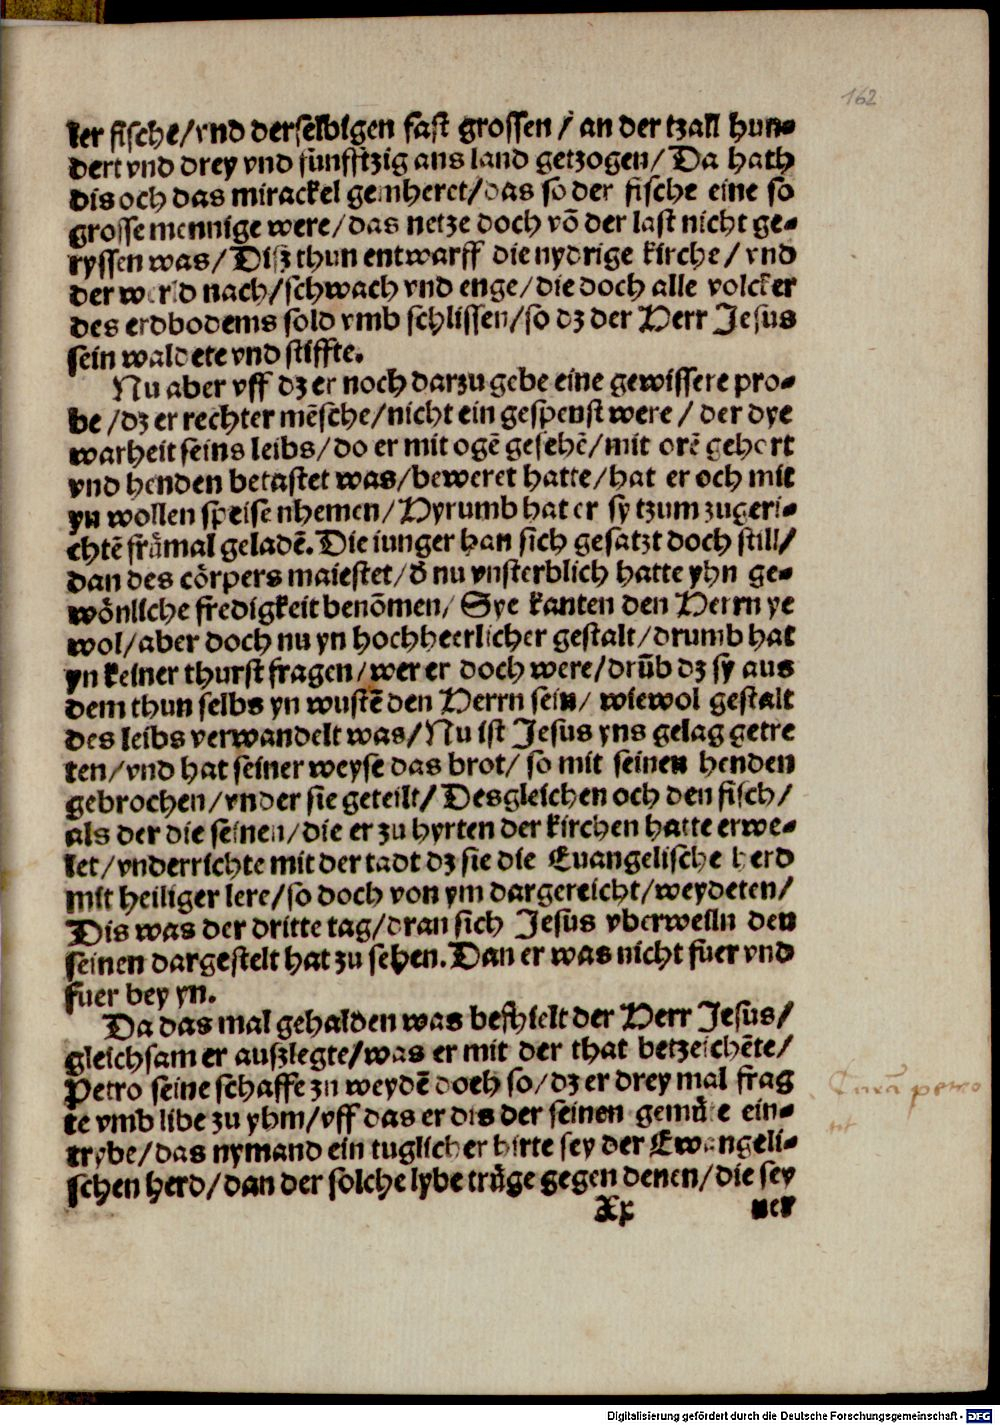 162
ler fische/vnd derselbigen fast grossen / an der tzall hun-
dert vnd drey vnd funfftzig ans land getzogen/Da hath
dis och das mirackel gemheret/das so der fische eine so
grosse mennige were/das netze doch võ der last nicht ge-
ryssen was/Disz thun entwarff die nydrige kirche/vnd
der werld nach/schwach vnd enge/die doch alle volcker
des erdbodems sold vmb schlissen/so dz der Herr Jesus
sein waldete vnd stiffte.
Nu aber vff dz er noch darzu gebe eine gewissere pro-
be/dz er rechter mẽsche/nicht ein gespenst were / der dye
warheit seins leibs/do er mit ogẽ gesehẽ/mit orẽ gehort
vnd henden betastet was/beweret hatte/hat er och mit
yn wollen speise nhemen/Hyrumb hat er sy tzum zugeri-
chtẽ frůmal geladẽ.Die iunger han sich gesatzt doch still/
dan des cörpers maiestet/d̄ nu vnsterblich hatte yhn ge-
wönliche fredigkeit benõmen/ Sye kanten den Herrn ye
wol/aber doch nu yn hochheerlicher gestalt/drumb hat
yn keiner thurst fragen/wer er doch were/drũb dz sy aus
dem thun selbs yn wustẽ den Herrn sein/ wiewol gestalt
des leibs verwandelt was/Nu ist Jesus yns gelag getre
ten/vnd hat seiner weyse das brot/ so mit seinen henden
gebrochen/vnder sie geteilt/Desgleichen och den fisch/
als der die seinen/die er zu hyrten der kirchen hatte erwe-
let/vnderrichte mit der tadt dz sie die Euangelische herd
mit heiliger lere/so doch von ym dargereicht/weydeten/
Dis was der dritte tag/dran sich Jesus vberwelln den
seinen dargestelt hat zu sehen.Dan er was nicht fuer vnd
fuer bey yn.
Da das mal gehalden was beshielt der Herr Jesus/
gleichsam er auszlegte/was er mit der that betzeichẽte/
Petro seine schaffe zu weydẽ doch so/dz er drey mal frag
te vmb libe zu yhm/vff das er dis der seinen gemůte ein-
trybe/das nymand ein tuglicher hirte sey der Ewangeli-
schen herd/dan der solche lybe trůge gegen denen/die sey
Xx ner
petro
Digitalisierung gefördert durch die Deutsche Forschungsgemeinschaft - DFG